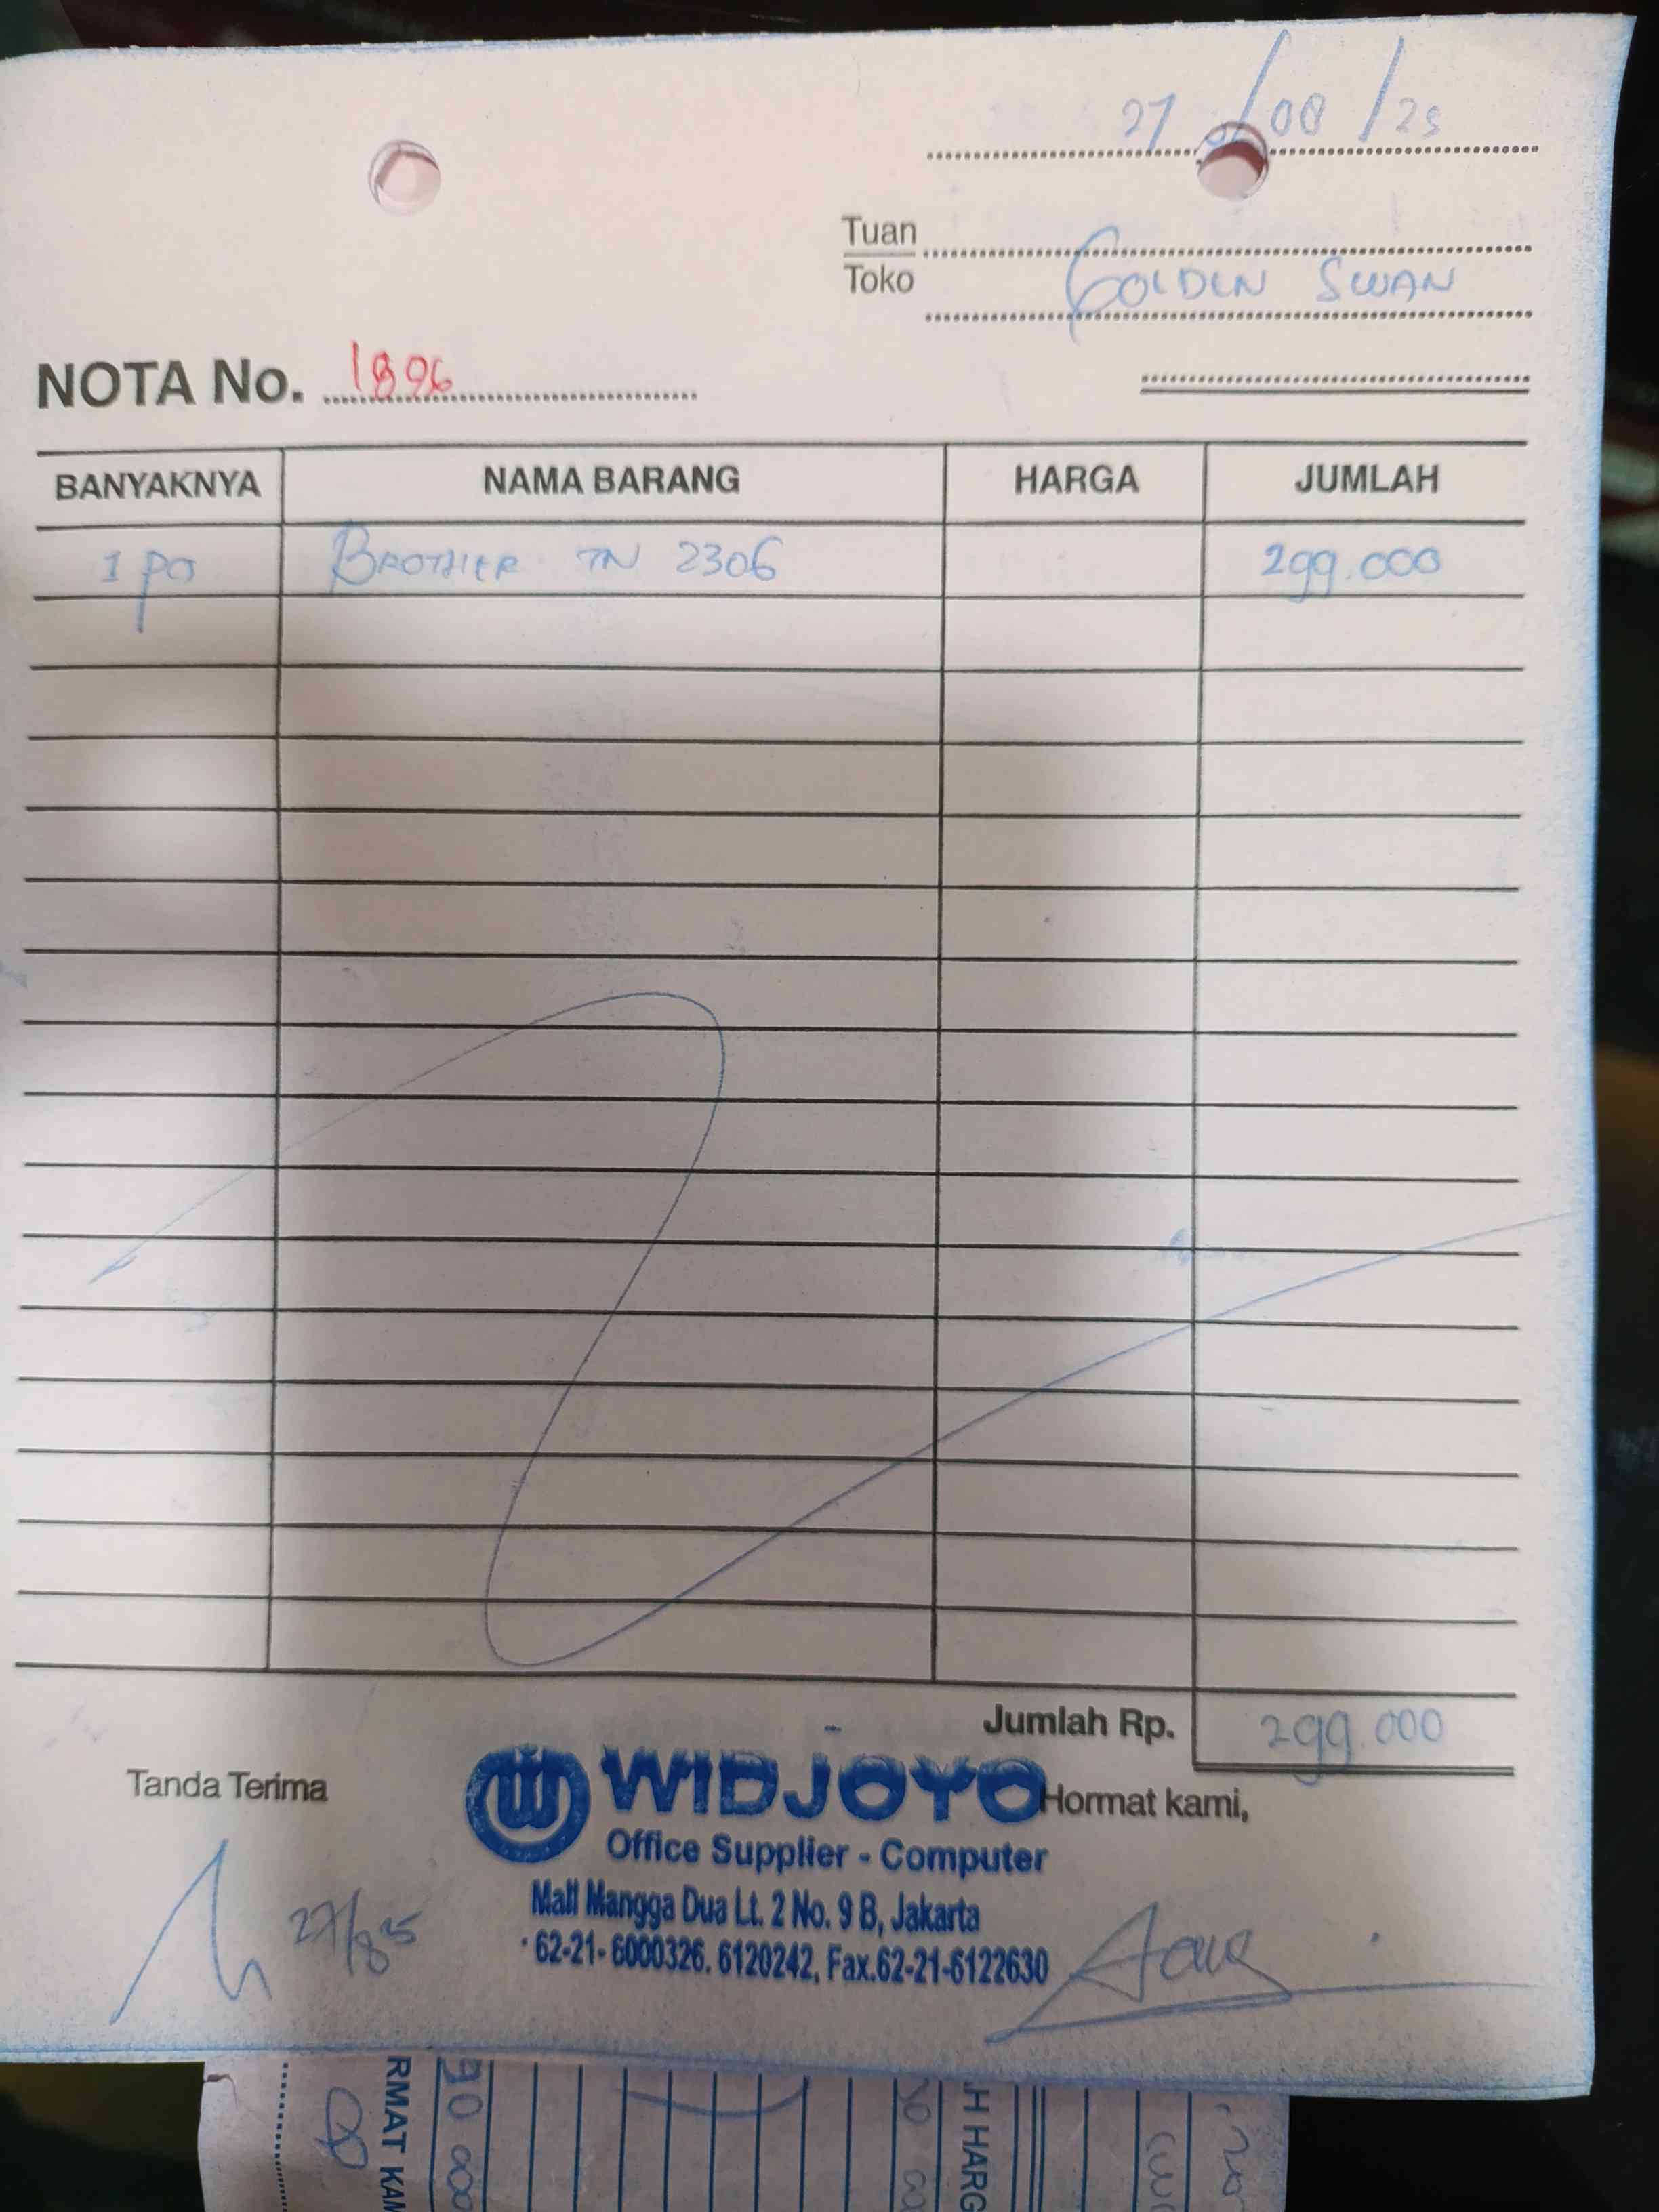 27/08/25
Tuan
Toko
GOLDEN SWAN
NOTA No. 1896
BANYAKNYA NAMA BARANG HARGA JUMLAH
1 BROTHER TN 2306 299.000
Jumlah Rp. 299.000
Tanda Terima
WIDJOYO
Hormat kami,
Office Supplier - Computer
Mall Mangga Dua Lt. 2 No. 9 B, Jakarta
27/8 25
62-21-6000326. 6120242, Fax.62-21-6122630
RMAT KAN
H HARG